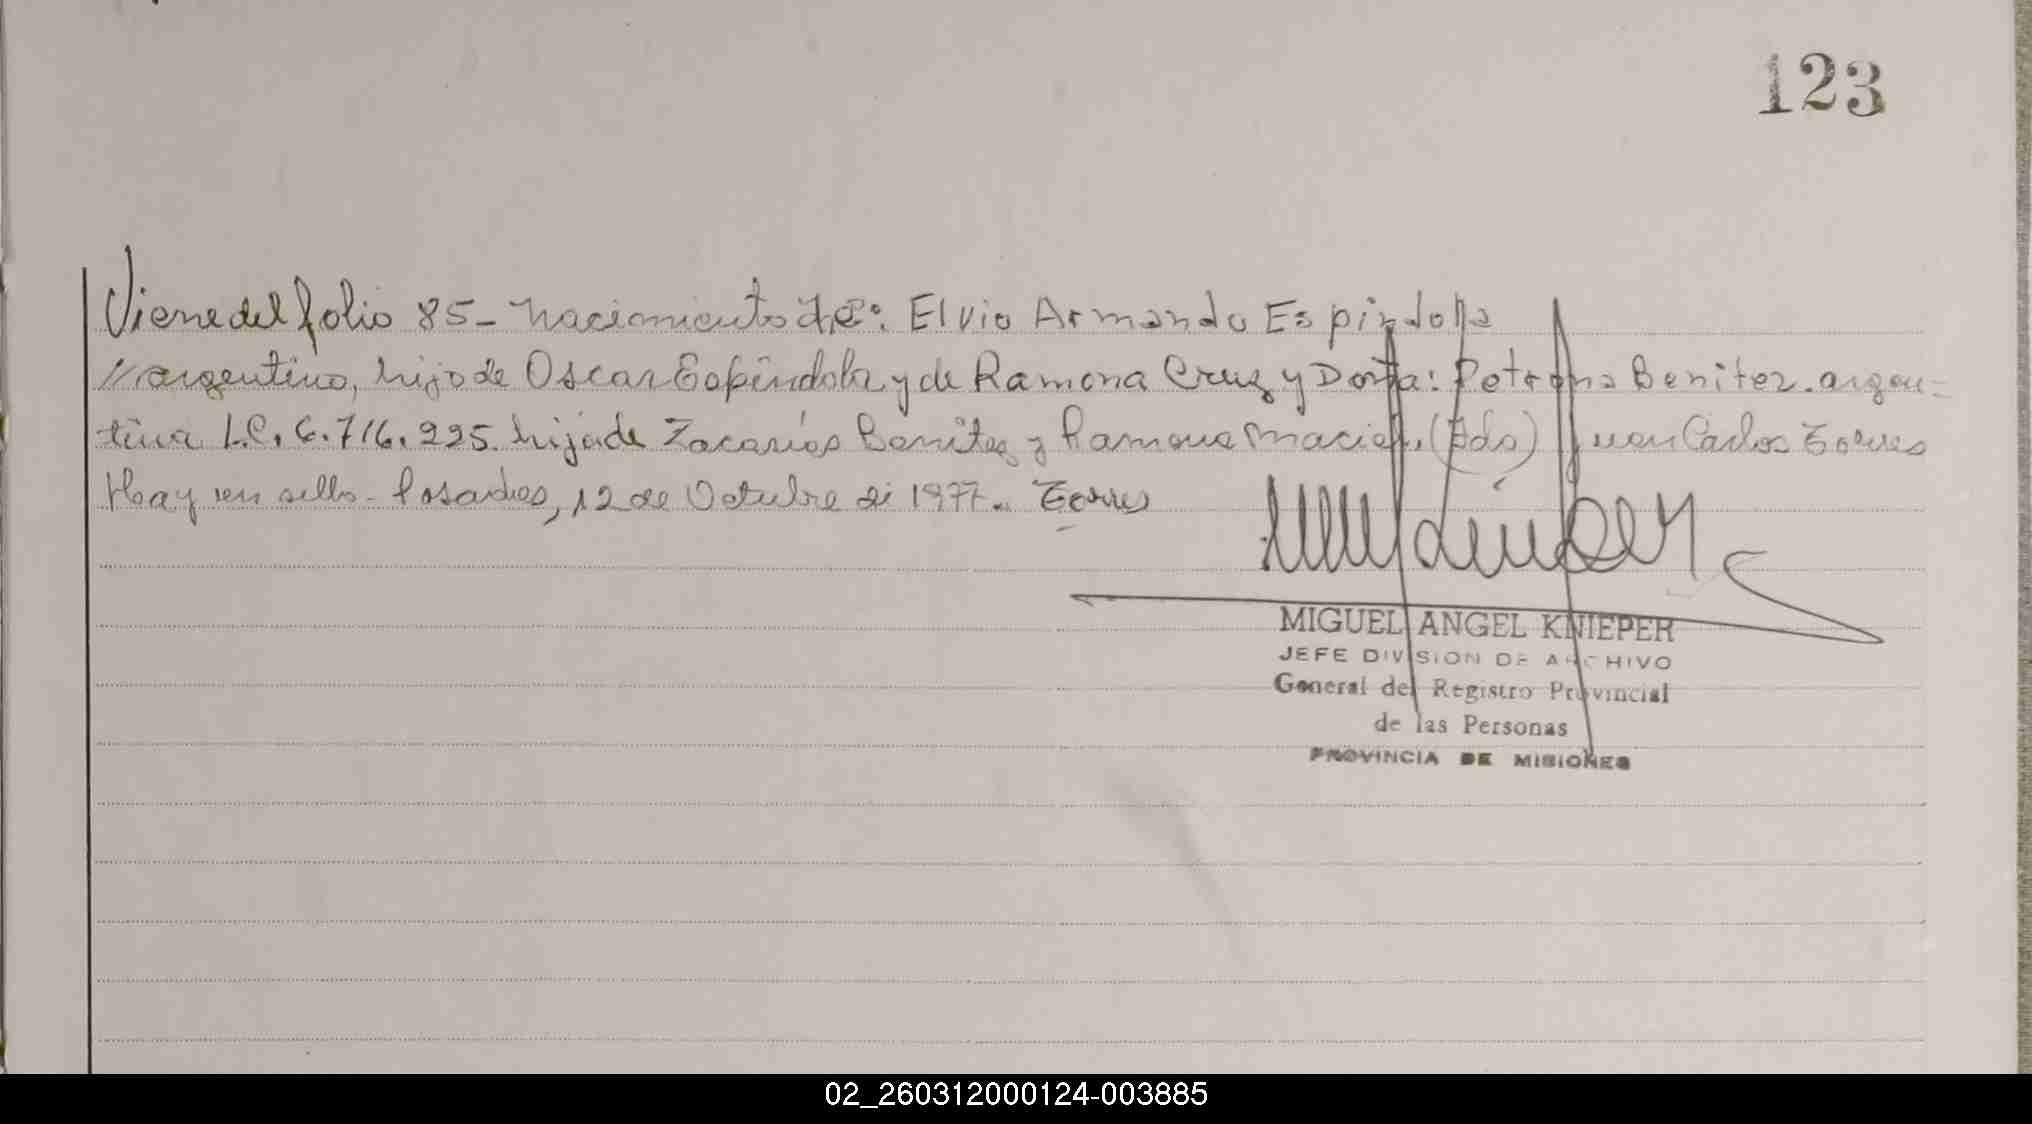 123
Viene del folio 85- nacimiento de: Elvio Armando Espindola
//argentino, hijo de Oscar Espindola y de Ramona Cruz y Doña: Petrona Benitez. argen-
tina L.C. 6.716.225. hija de Zacarías Benitez y Ramona Maciel. (Fdo) Juan Carlos Torres
Hay un sello- Posadas, 12 de Octubre de 1977.. Torres
MIGUEL ANGEL KNIEPER
JEFE DIVISION DE ARCHIVO
General del Registro Provincial
de las Personas
PROVINCIA DE MISIONES
02_260312000124-003885